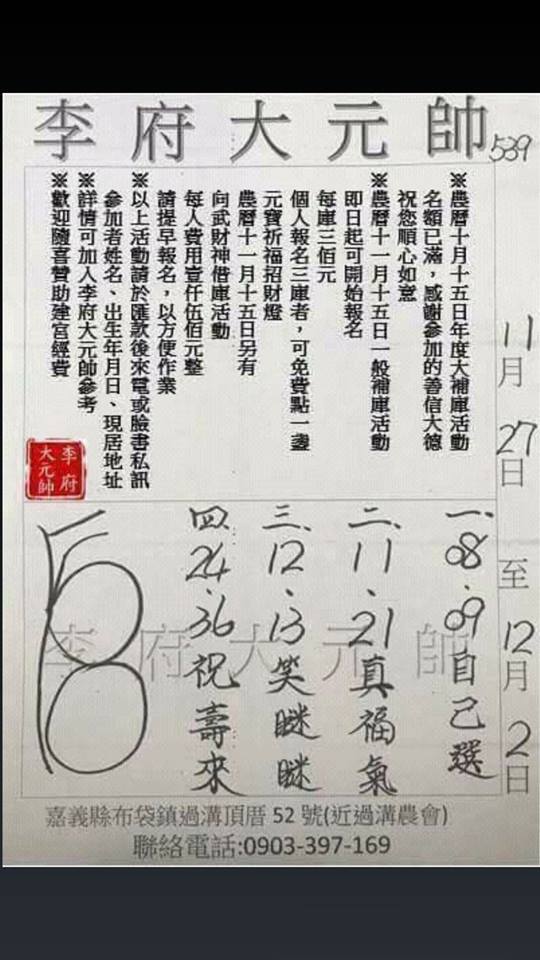 李府大元帥
539
※農曆十月十五日年度大補庫活動
名額已滿，感謝參加的善信大德
祝您順心如意
※農曆十一月十五日一般補庫活動
即日起可開始報名
每庫三佰元
個人報名三庫者，可免費點一盞
元寶祈福招財燈
農曆十一月十五日另有
向武財神借庫活動
每人費用壹仟伍佰元整
請提早報名，以方便作業
※以上活動請於匯款後來電或臉書私訊
參加者姓名、出生年月日、現居地址
※詳情可加入李府大元帥參考
※歡迎隨喜贊助建宮經費
李府
大元帥
11月27日至12月2日
一、08、09自己選
二、11、21真福氣
三、12、13笑瞇瞇
四、24、36祝壽來
李府大元帥
嘉義縣布袋鎮過溝頂厝 52 號(近過溝農會)
聯絡電話:0903-397-169